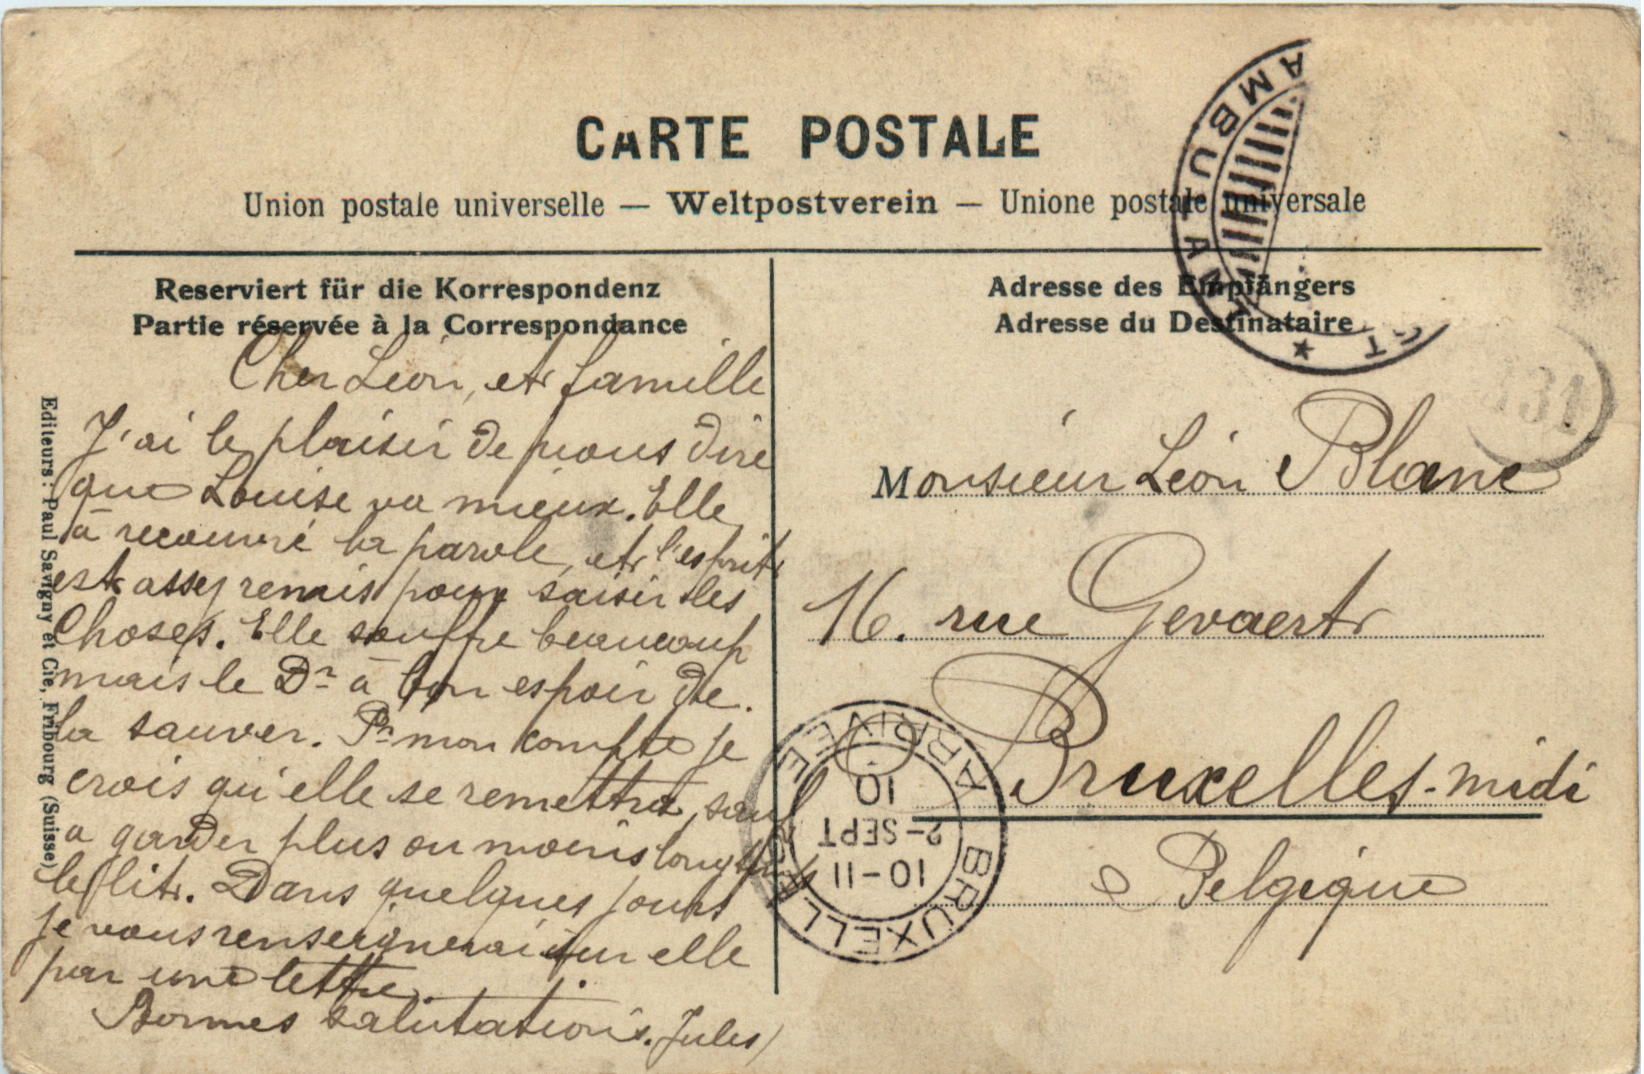 CARTE POSTALE
Union postale universelle — Weltpostverein — Unione postale universale
Reserviert für die Korrespondenz
Partie réservée à la Correspondance
Adresse des Empfängers
Adresse du Destinataire
Editeurs: Paul Savigny et Cie, Fribourg (Suisse)
Cher Léon, et famille
J'ai le plaisir de vous dire
que Louise va mieux. Elle
à recouvré la parole, et l'esprit
est assez remis pour saisir les
Choses. Elle souffre beaucoup
mais le Dr à bon espoir de
la sauver. Pr mon compte je
crois qu'elle se remettra, sauf
a garder plus ou moins longtemps
le lit. Dans quelques jours
je vous renseignerai sur elle
par une lettre.
Bonnes salutations. Jules
Monsieur Léon Blanc
16. rue Gevaert
Bruxelles-midi
Belgique
AMBULANT
BRUXELLES
ARRIVEE
10-11
2-SEPT
10
131